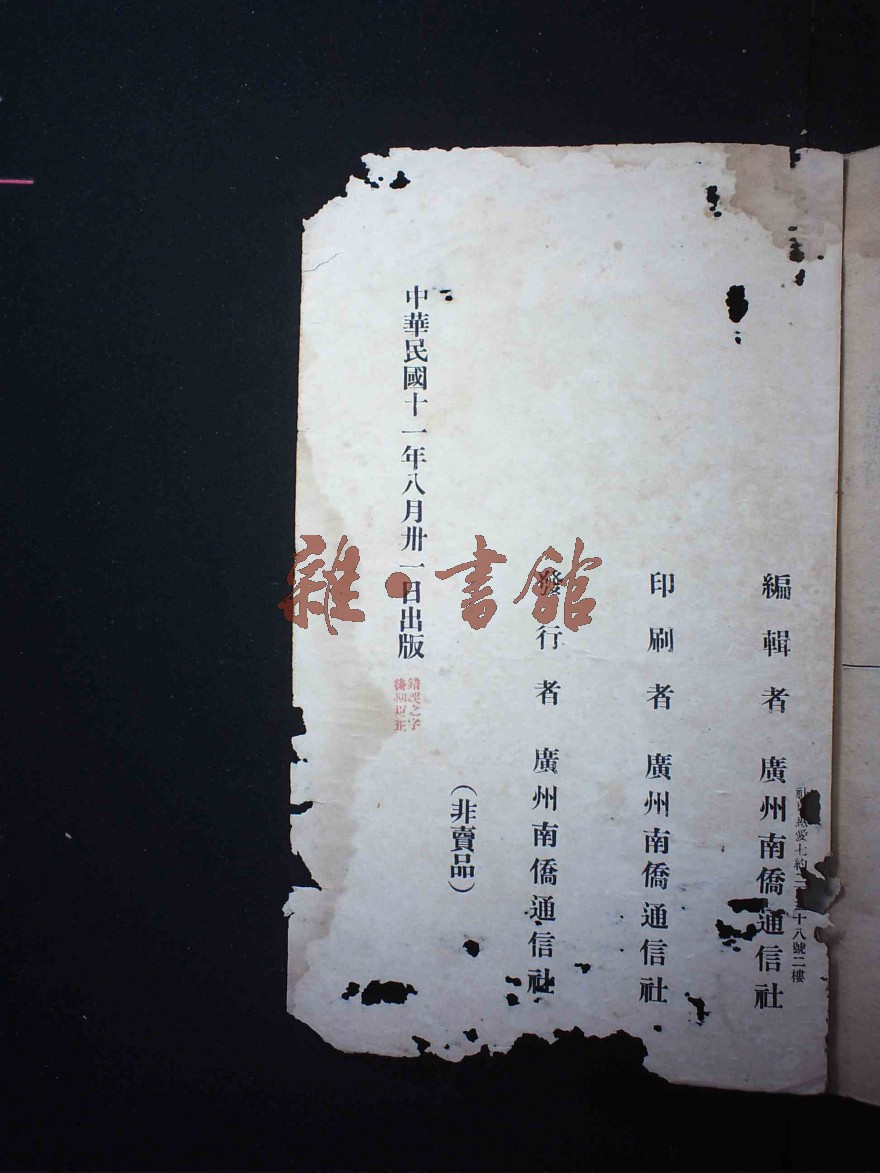 編輯者　廣州南僑通信社
社　熱愛七約二　十八號二樓
印刷者　廣州南僑通信社
發行者　廣州南僑通信社
（非賣品）
中華民國十一年八月卅一日出版
錯誤之字
後期更正
雜·書館